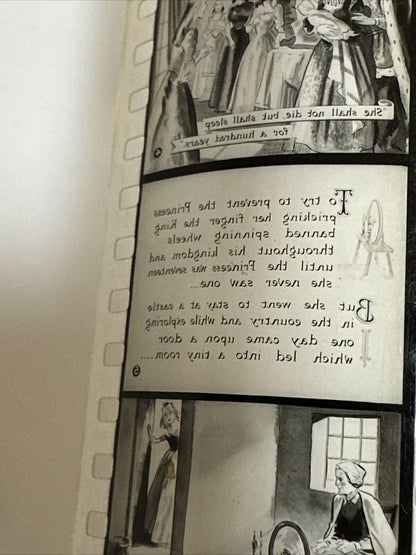 "She shall not die, but shall sleep
for a hundred years."
4
To try to prevent the Princess
pricking her finger the King
banned spinning wheels
throughout his kingdom and
until the Princess was seventeen
she never saw one...
But she went to stay at a castle
in the country and while exploring
one day came upon a door
which led into a tiny room....
5